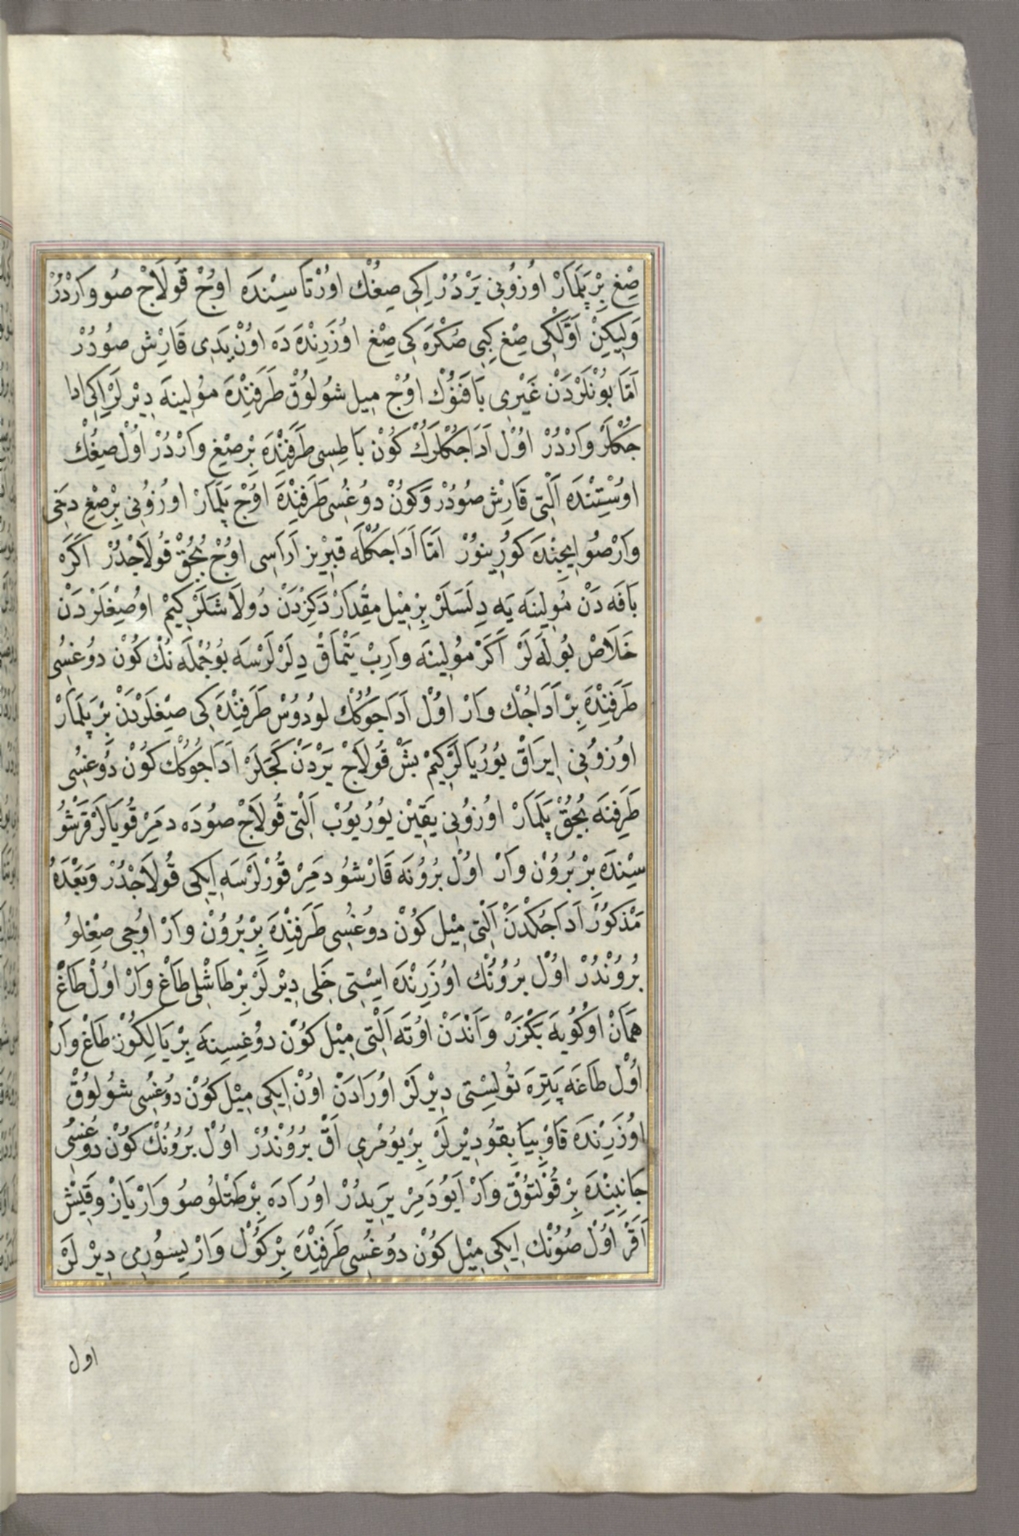 صِغ بِرْ پَلَمَارْ اوُزوُنِي يَرْدُرْ اِكِي صِغُكْ اوُرْتَاسِنْدَه اوُجْ قُولَاجْ صُو وَارْدُرْ
وَلِيكِنْ اَوَّلْكِي صِغْ كِبِي صُكْرَه كِي صِغْ اوُزَرِنْدَه دَه اوُنْ يَدِي قَارِش صُودُرْ
اَمَّا بُونْلَرْدَنْ غَيْرِي بَافَنُوكْ اوُجْ مِيل شُولُوقْ طَرَفِنْدَه مُولِينَه دِيرْلَرْ اِكِي ادا
جُكْلَرْ وَارْدُرْ اوُلْ اَدَاجُكْلَرُكْ كُونْ بَاطِسِي طَرَفِنْدَه بِرْ صِيغْ وَارْدُرْ اوُلْ صِيغُكْ
اوُسْتِنْدَه اَلْتِي قَارِشْ صُودُرْ وَكُونْ دوُغُسِي طَرَفِنْدَه اوُجْ پَلَمَارْ اوُزوُنِي بِرْ صِغْ دَخِي
وَارْ صُو اِيچِنْدَه كُورِينُورْ اَمَّا اَدَاجُكْلَه قِبْرِيز اَرَاسِي اوُجْ بُچُقْ قُولَاجْدُرْ اَكَرْ
بَافَه دَنْ مُولِينَه يَه دِلَسَلَرْ بِرْ مِيْل مِقْدَارْ دَكِزْدَنْ دُولَاشَلَرْ كِيمْ اوُ صِغْلَرْدَنْ
خَلَاصْ بُولَه لَرْ اَكَرْ مُولِينَه وَارِبْ يَتْمَاقْ دِلَرْلَرْسَه بُو جُمْلَه نُكْ كُونْ دوُغُسِي
طَرَفِنْدَه بِرْ اَدَاجُكْ وَارْ اوُلْ اَدَاجُوكُكْ لُودُوسْ طَرَفِنْدَه كِي صِيغْلَرْدَنْ بِرْ پَلَمَارْ
اوُزوُنِي اِيرَاقْ يُورُيَالَرْ كِيمْ بَشْ قُولَاجْ يَرْدَنْ كَچَلَرْ اَدَاجُوكُكْ كُونْ دوُغُسِي
طَرَفِنَه بُچُقْ پَلَمَارْ اوُزوُنِي يَقِيْن يُورُيُوبْ اَلْتِي قُولَاجْ صُودَه دَمِرْ قُويَالَرْ قَرْشُو
سِنْدَه بِرْ بُرُونْ وَارْ اوُلْ بُرُونَه قَارْشُو دَمِرْ قُورْلَرْسَه اِيكِي قُولَاجْدُرْ وَبَعْدَهُ
مَذْكُورْ اَدَاجُكْدَنْ اَلْتِي مِيْل كُونْ دوُغُسِي طَرَفِنْدَه بِرْ بُرُونْ وَارْ اوُچِي صِغْلُو
بُرُونْدُرْ اوُلْ بُرُونُكْ اوُزَرِنْدَه اِسْتِي خَلِي دِيْرلَرْ بِرْ طَاشْلِي طَاغْ وَارْ اوُلْ طَاغْ
هَمَانْ اوُكُويَه بَكْزَرْ وَاَنْدَنْ اوُتَه اَلْتِي مِيْل كُونْ دوُغِسِنَه بِرْ يَالِكُوزْ طَاغْ وَارْ
اوُلْ طَاغَه پَتِرَه تُولِسْتِي دِيْرلَرْ اوُرَادَنْ اوُنْ اِيكِي مِيْل كُونْ دوُغُسِي شُولُوقْ
اوُزَرِنْدَه قَاوُبِيَابِقُو دِيْرلَرْ بِرْ يُومْرِي اَقْ بُرُونْدُرْ اوُلْ بُرُونُكْ كُونْ دوُغُسِي
جَانِبِنْدَه بِرْ قُولْتُوقْ وَارْ اَيُو دَمِرْ يَرِيدُرْ اوُرَادَه بِرْ طَتْلُو صُو وَارْ يَازْ وَقِيْشْ
اَقَرْ اوُلْ صُونُكْ اِيكِي مِيْل كُونْ دوُغُسِي طَرَفِنْدَه بِرْ كَوُلْ وَارْ لِيسُورِمِي دِيْرلَرْ
اول